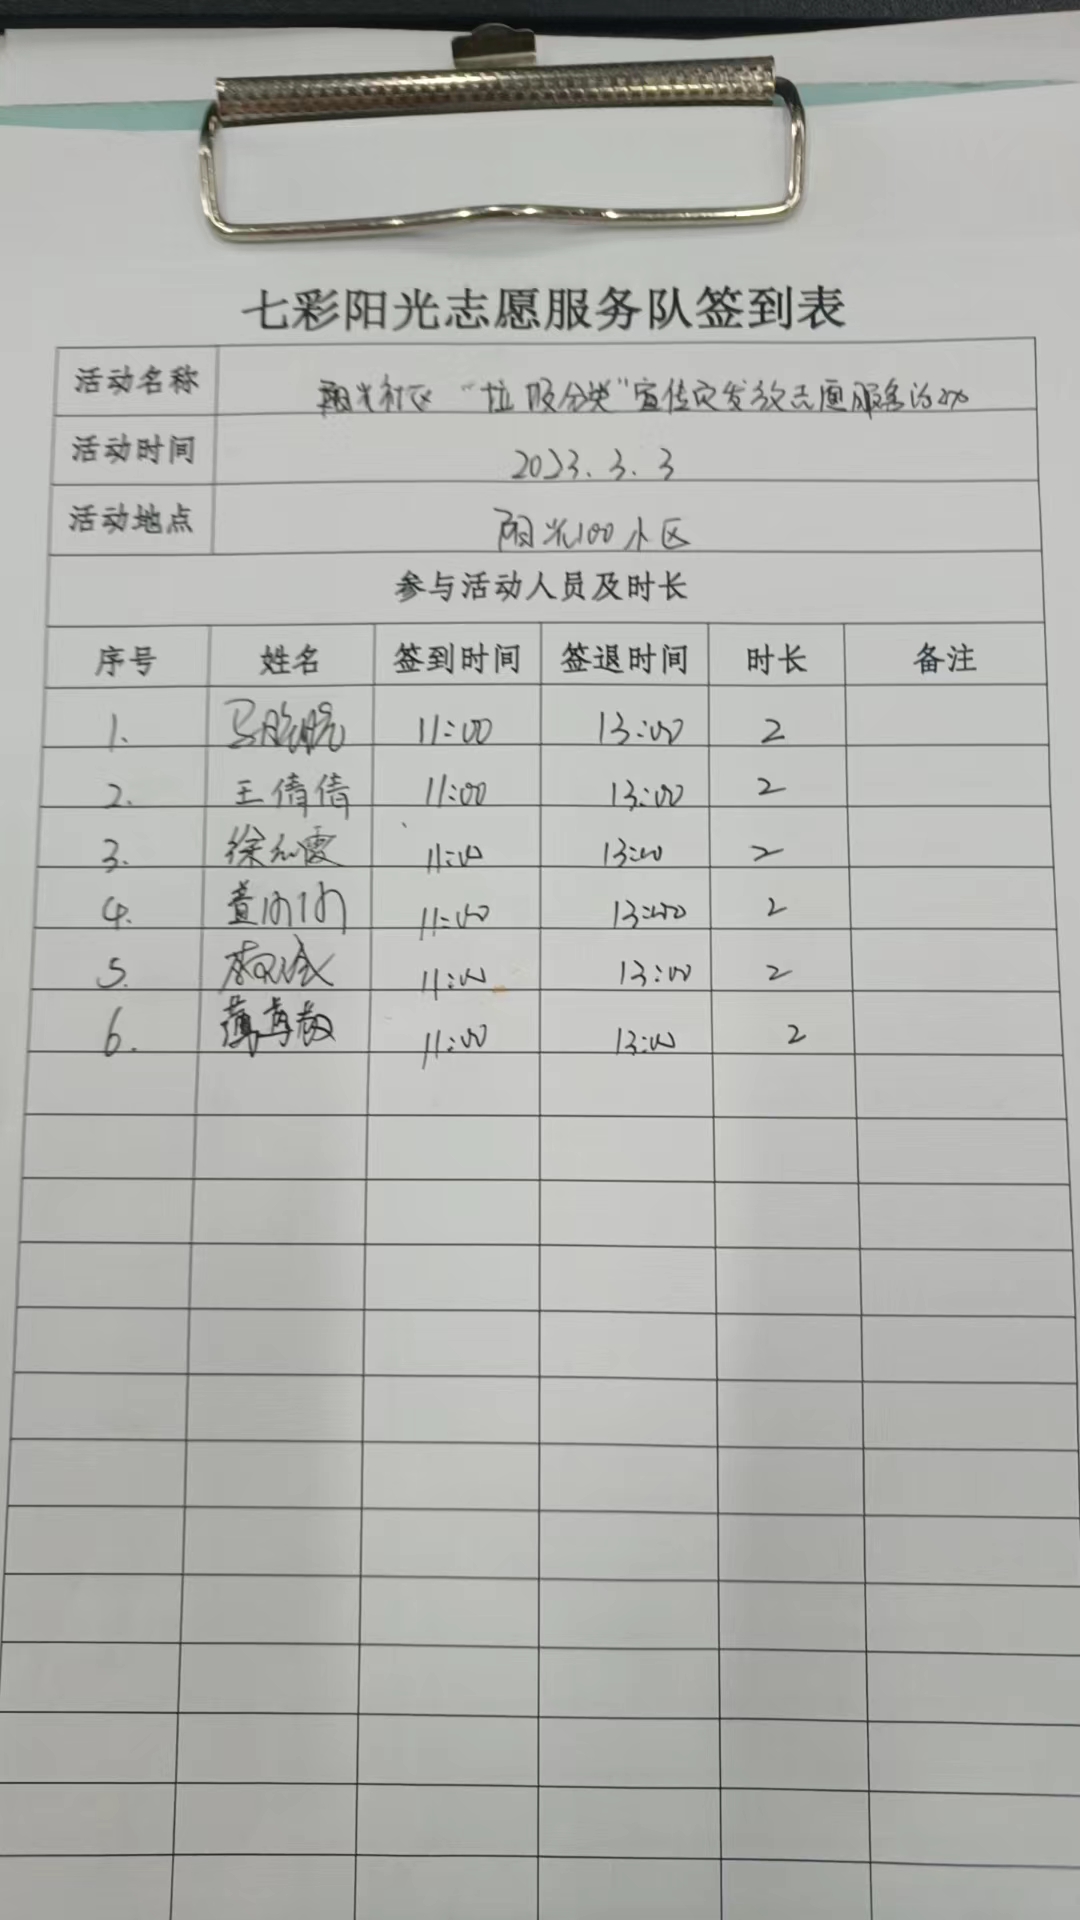 七彩阳光志愿服务队签到表
活动名称 阳光社区“垃圾分类”宣传页发放志愿服务活动
活动时间 2023.3.3
活动地点 阳光100小区
参与活动人员及时长
序号 姓名 签到时间 签退时间 时长 备注
1. 11:00 13:00 2
2. 王倩倩 11:00 13:00 2
3. 徐 霞 11:00 13:00 2
4. 11:00 13:00 2
5. 11:00 13:00 2
6. 11:00 13:00 2